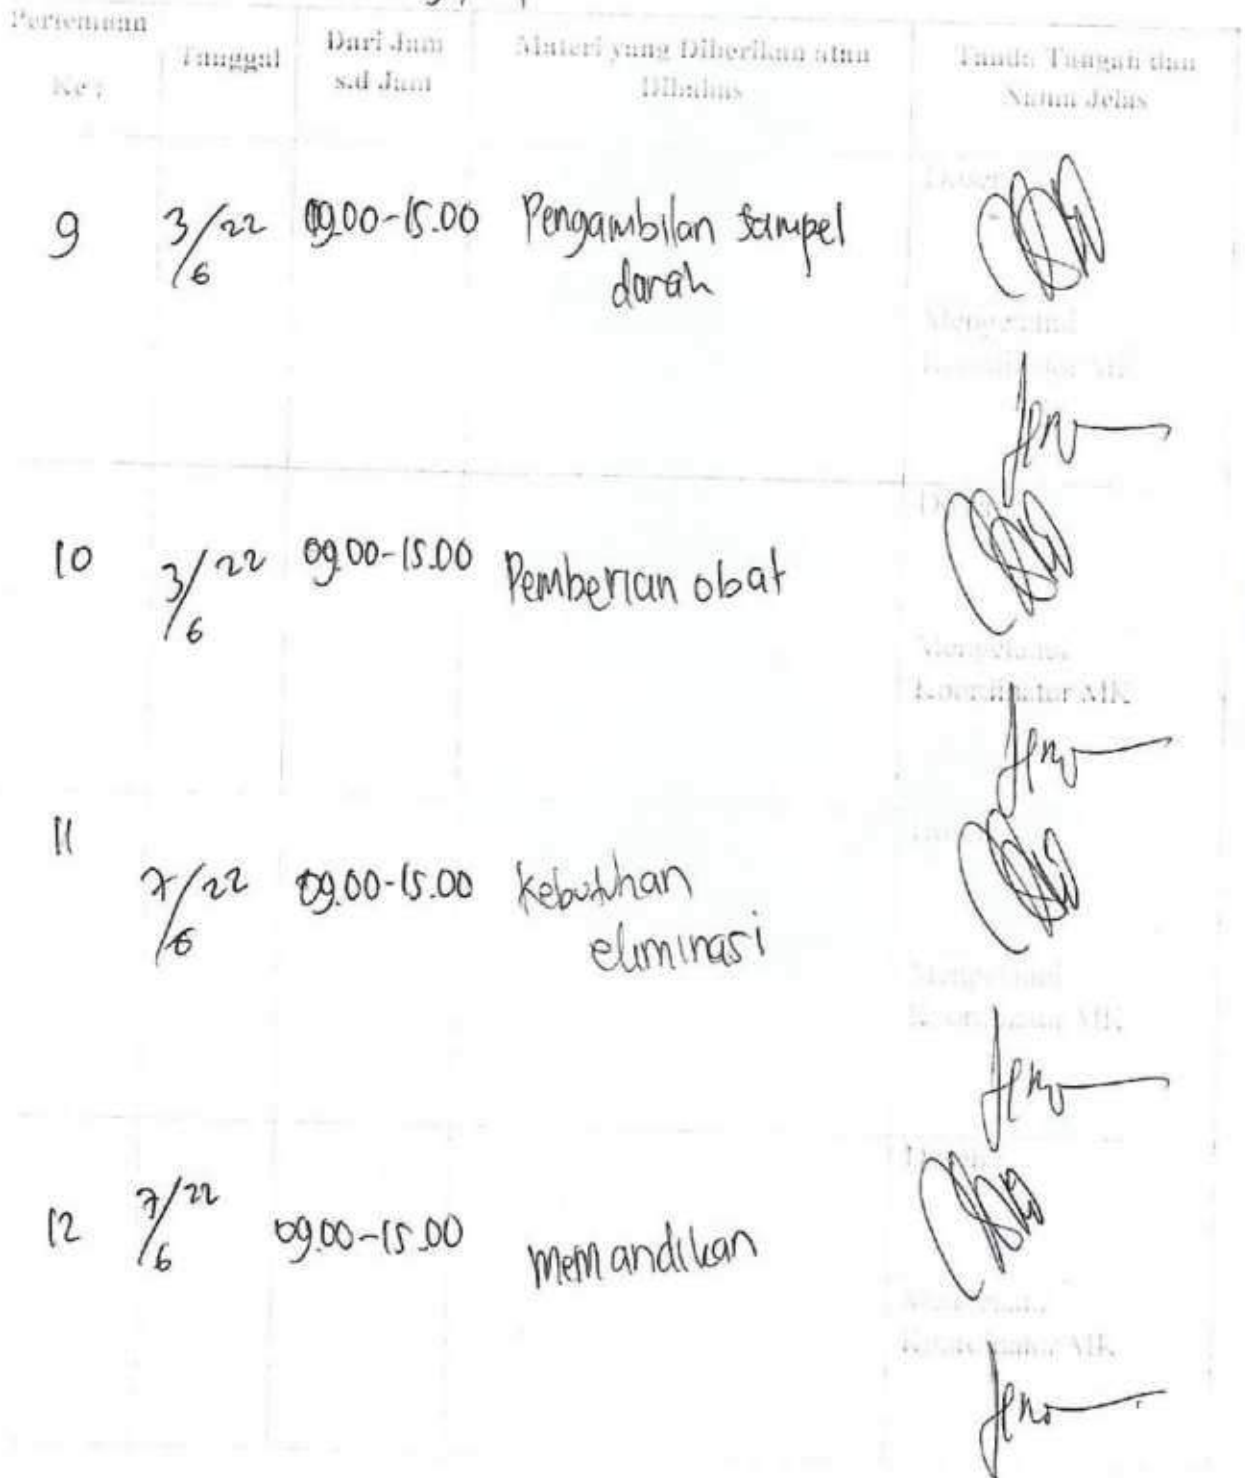 Pertemuan Ke :
Tanggal
Dari Jam
s.d Jam
Materi yang Diberikan atau
Dibahas
Tanda Tangan dan
Nama Jelas
9
3/6/22
09.00-15.00
Pengambilan sampel
darah
Dosen
Mengetahui
Koordinator MK
10
3/6/22
09.00-15.00
Pemberian obat
Dosen
Mengetahui
Koordinator MK
11
7/6/22
09.00-15.00
Kebutuhan
eliminasi
Mengetahui
Koordinator MK
12
7/6/22
09.00-15.00
memandikan
Dosen
Mengetahui
Koordinator MK